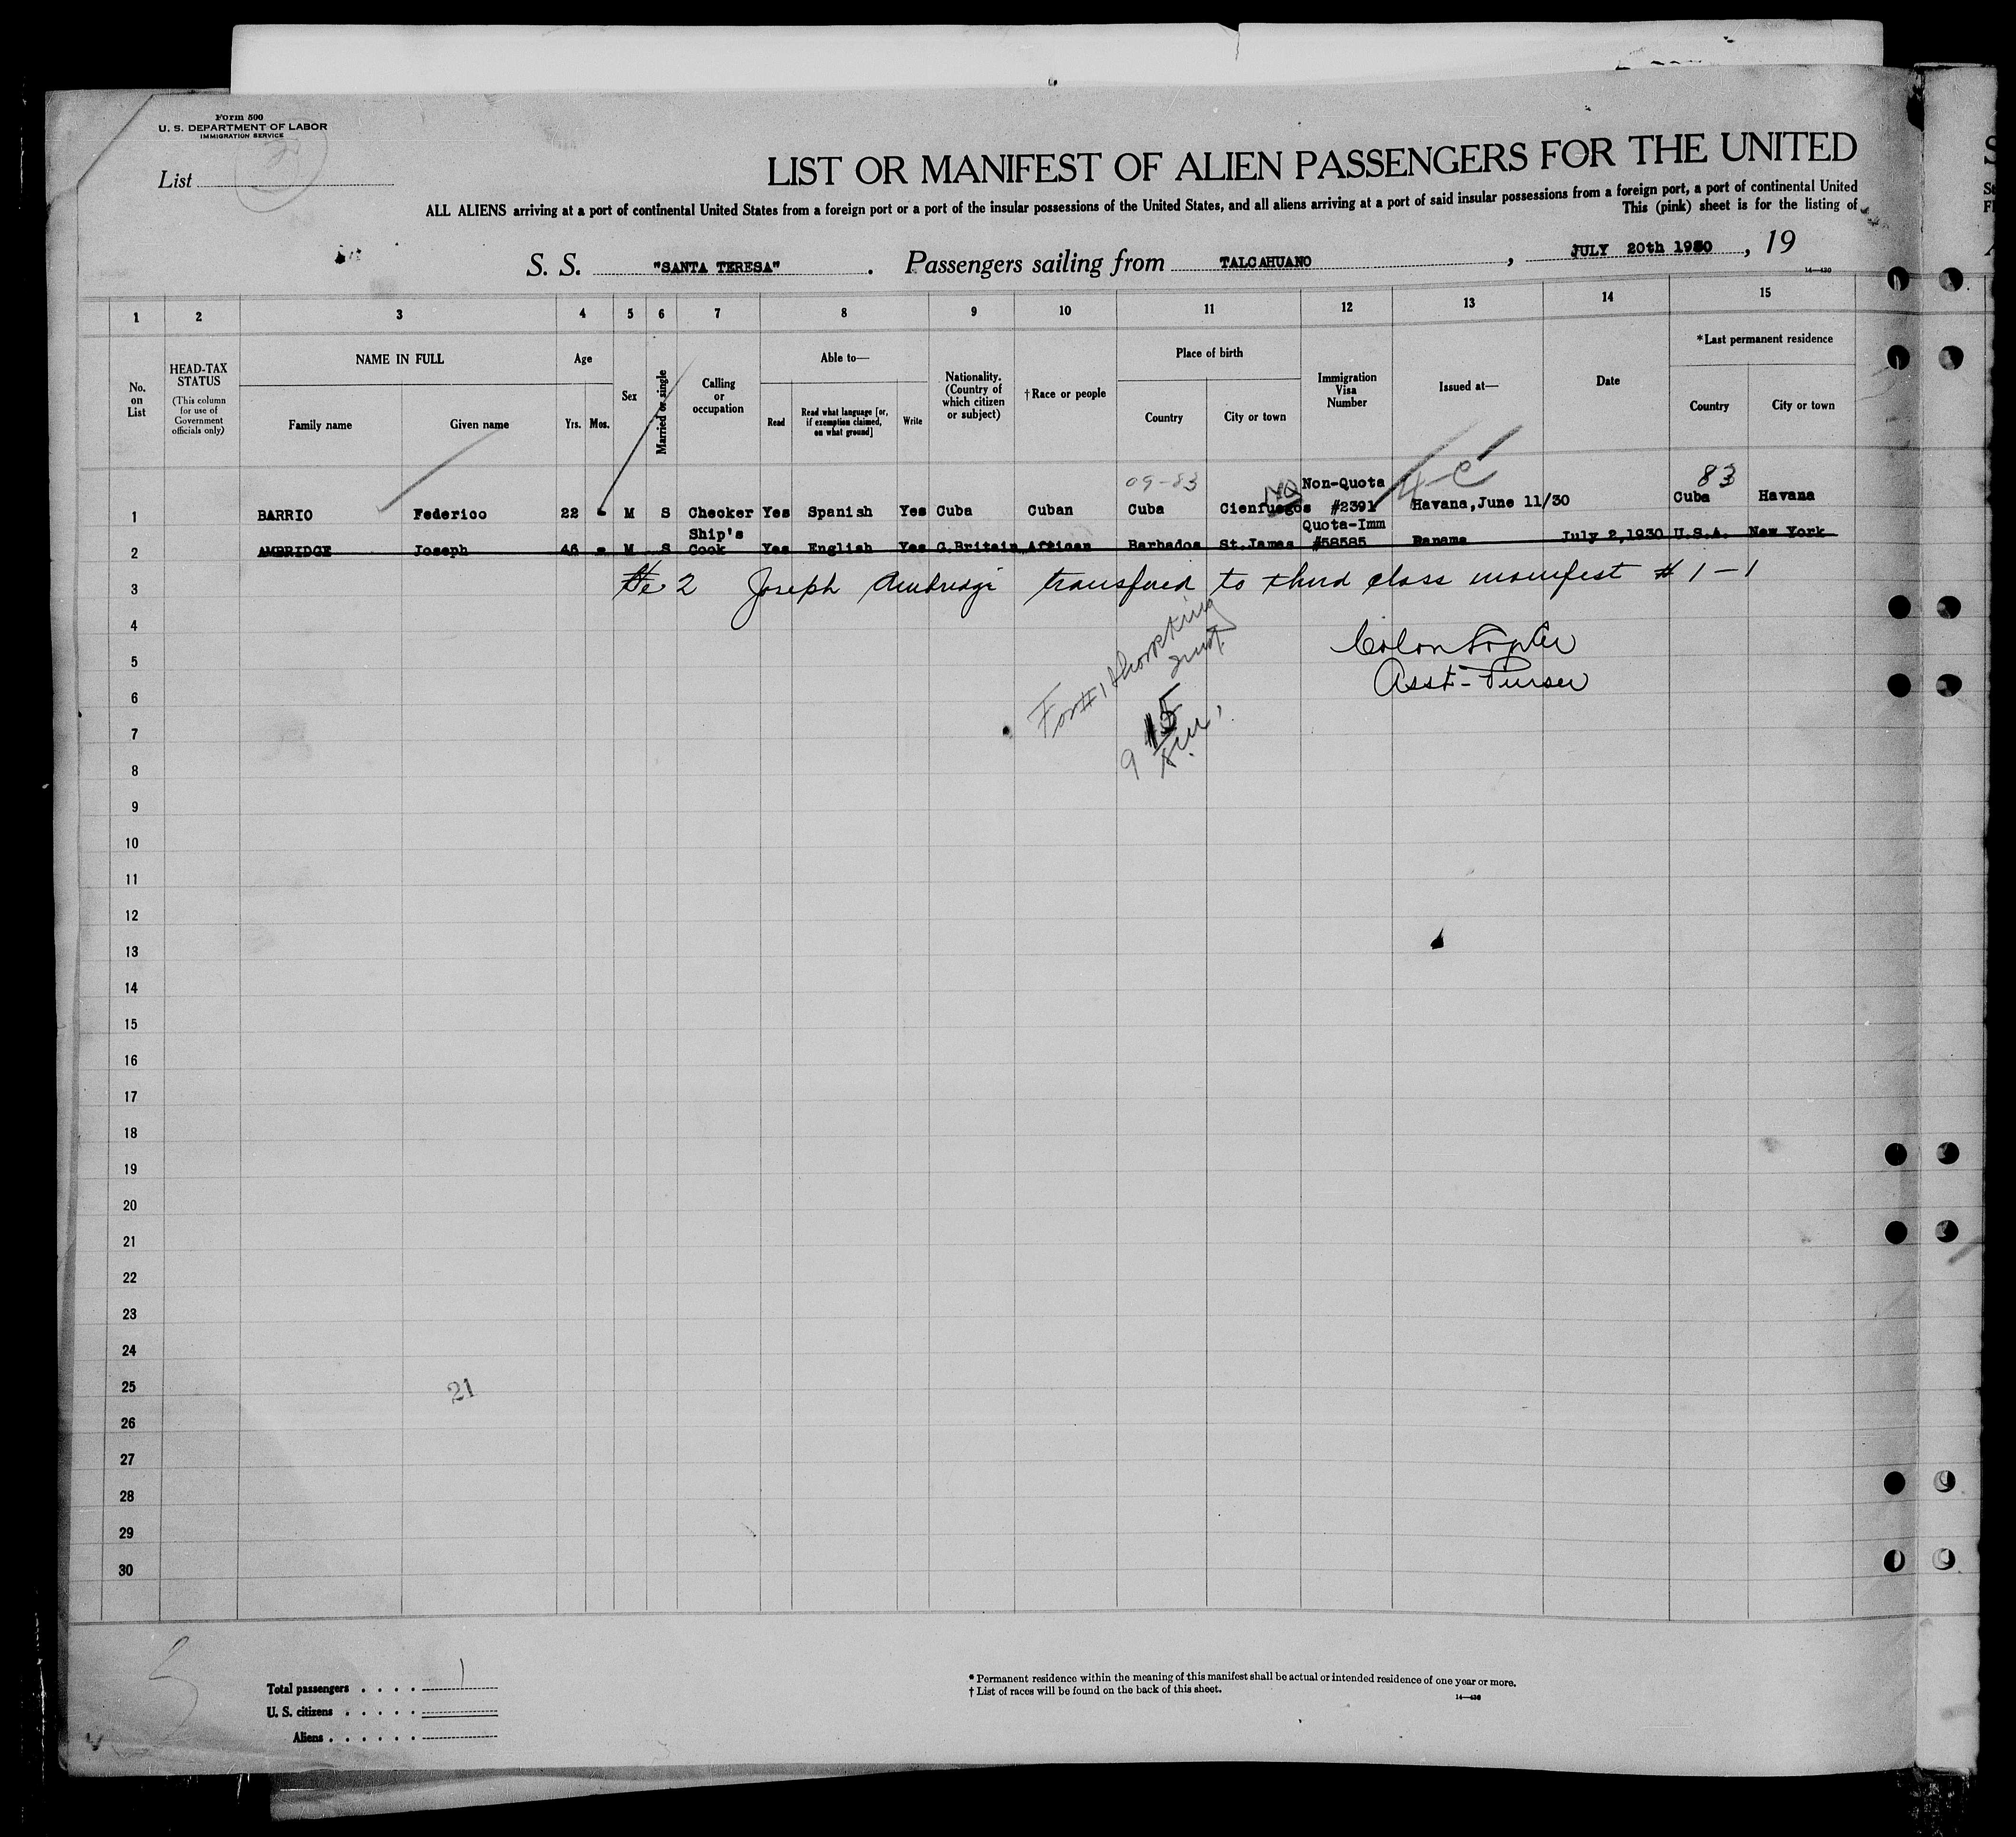 Form 500
U. S. DEPARTMENT OF LABOR
IMMIGRATION SERVICE
List
LIST OR MANIFEST OF ALIEN PASSENGERS FOR THE UNITED
ALL ALIENS arriving at a port of continental United States from a foreign port or a port of the insular possessions of the United States, and all aliens arriving at a port of said insular possessions from a foreign port, a port of continental United
This (pink) sheet is for the listing of
S. S. "SANTA TERESA" . Passengers sailing from TALCAHUANO , JULY 20th 1930 , 19
14—430
1 2 3 4 5 6 7 8 9 10 11 12 13 14 15
No. on List
HEAD-TAX STATUS
(This column for use of Government officials only)
NAME IN FULL
Family name Given name
Age
Yrs. Mos.
Sex
Married or single
Calling or occupation
Able to—
Read Read what language [or, if exemption claimed, on what ground] Write
Nationality. (Country of which citizen or subject)
†Race or people
Place of birth
Country City or town
Immigration Visa Number
Issued at—
Date
*Last permanent residence
Country City or town
09-83 NQ Non-Quota 4-C 83
1 BARRIO Federico 22 - M S Checker Yes Spanish Yes Cuba Cuban Cuba Cienfuegos #2391 Havana, June 11/30 Cuba Havana
Ship's Quota-Imm
2 AMBRIDGE Joseph 46 - M S Cook Yes English Yes G.Britain African Barbados St.James #58585 Panama July 2, 1930 U.S.A. New York
3 2 Joseph Ambridge transfered to third class manifest # 1-1
4
5
Asst-Purser
6
7
8
9
10
11
12
13
14
15
16
17
18
19
20
21
22
23
24
25
21
26
27
28
29
30
Total passengers . . . . 1
U. S. citizens . . . . .
Aliens . . . . . .
* Permanent residence within the meaning of this manifest shall be actual or intended residence of one year or more.
† List of races will be found on the back of this sheet.
14—430